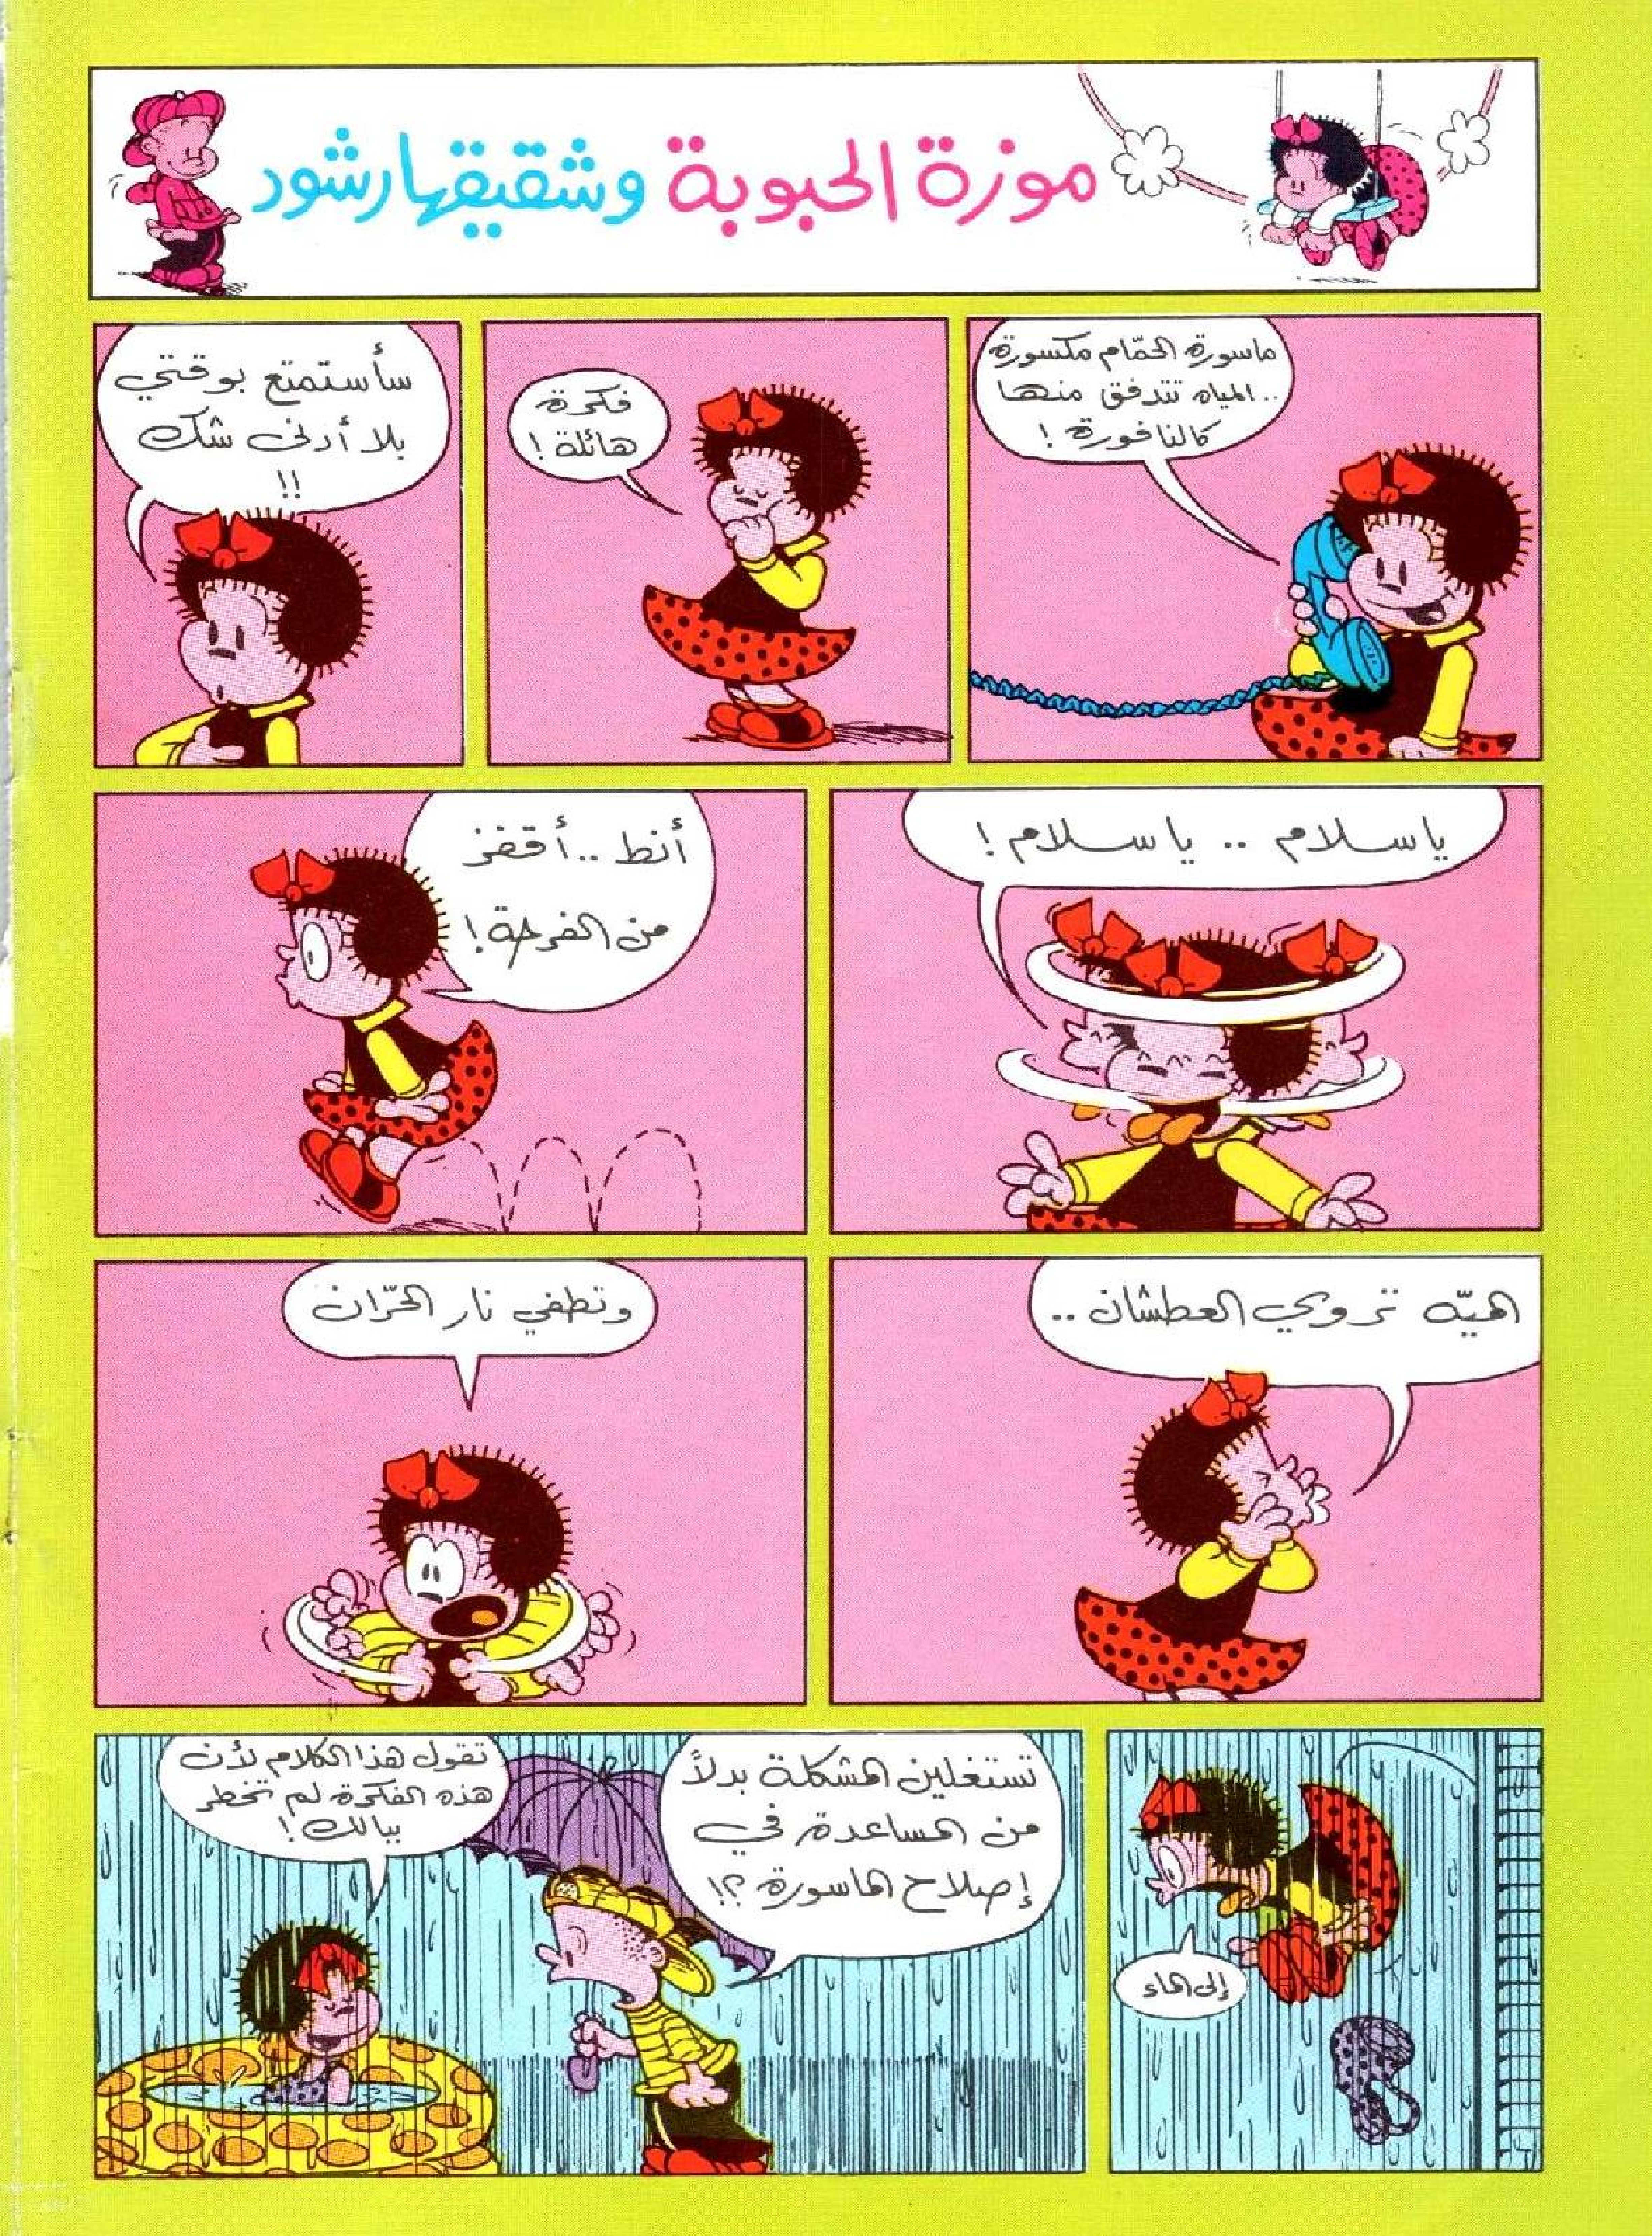 موزة الحبوبة وشقيقها رشود
ماسورة الحمّام مكسورة
.. المياه تتدفق منها
كالنافورة !
فكرة
هائلة !
سأستمتع بوقتي
بلا أدنى شك
!!
يا سلام .. يا سلام !
أنط .. أقفز
من الفرحة !
الميّه تروي العطشان ..
وتطفي نار الحرّان
إلى الماء
تستغلين المشكلة بدلاً
من المساعدة في
إصلاح الماسورة ؟!
تقول هذا الكلام لأن
هذه الفكرة لم تخطر
ببالك !